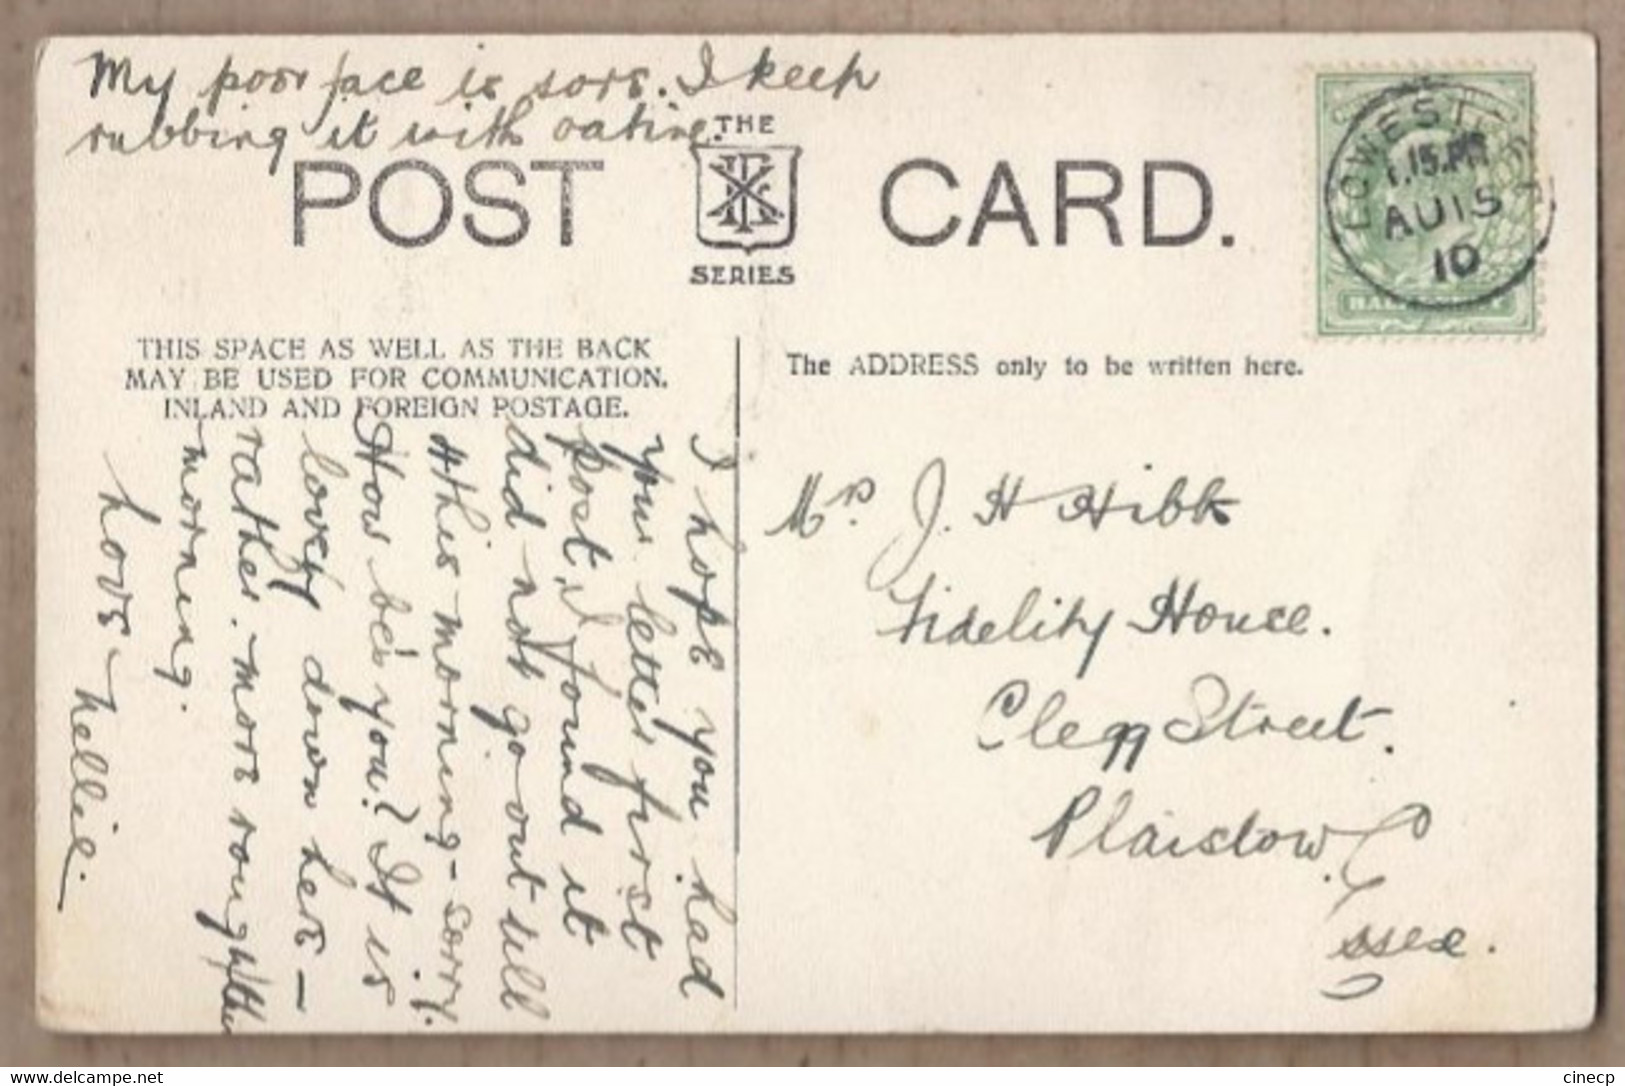 My poor face is sore. I keep
rubbing it with oatine.
THE
POST CARD.
SERIES
LOWESTOFT
1.15.PM
AU 15
10
HALFPENNY
THIS SPACE AS WELL AS THE BACK
MAY BE USED FOR COMMUNICATION.
INLAND AND FOREIGN POSTAGE.
The ADDRESS only to be written here.
I hope you had
your letter first
post, I found it
did not go out till
this morning - sorry.
How be's you? It is
lovely down here -
rather more rough this
morning.
Love Nellie.
Mr. J. H Hibbs
Fidelity House.
Clegg Street.
Plaistow.
Essex.
cinecp